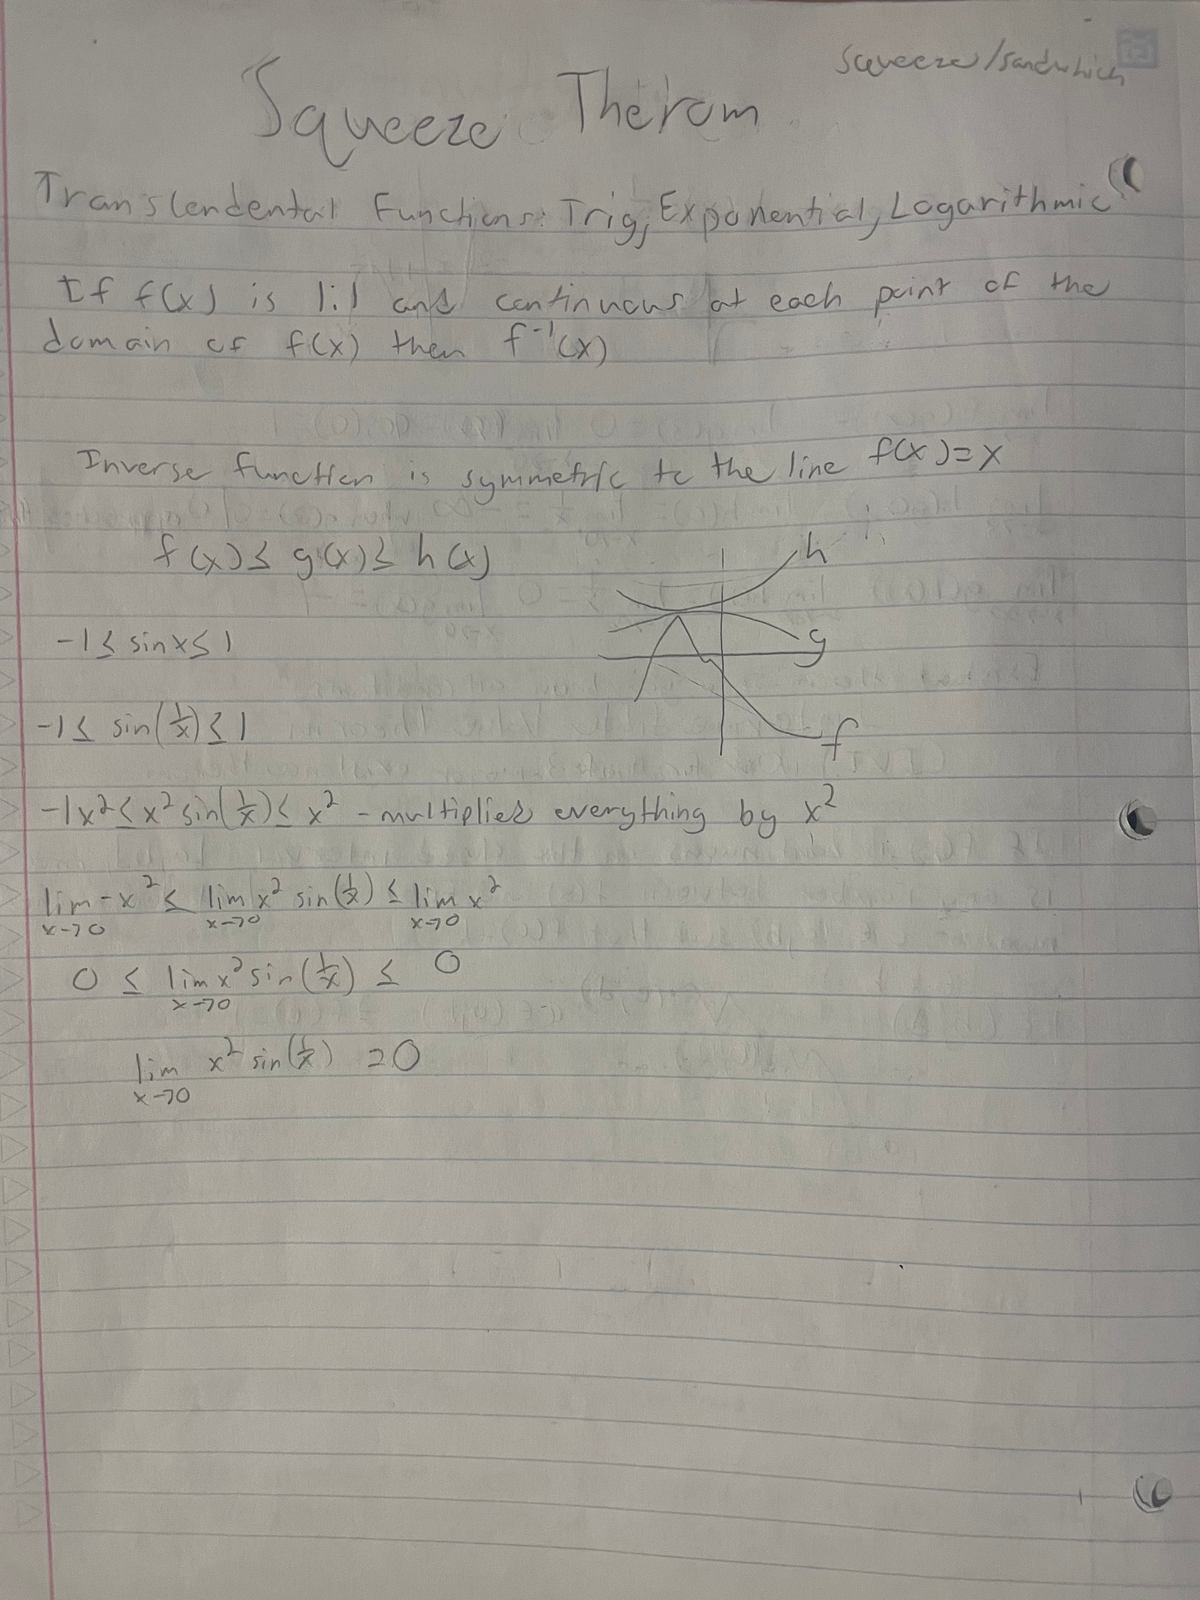 Squeeze/Sandwhich
Squeeze Therom
Translendental Functions: Trig, Exponential, Logarithmic
If f(x) is 1:1 and continuous at each point of the
domain of f(x) then f⁻¹(x)
Inverse function is symmetric to the line f(x)=x
f(x) ≤ g(x) ≤ h(x)
h
g
f
-1 ≤ sinx ≤ 1
-1 ≤ sin(1/x) ≤ 1
-1x² ≤ x² sin(1/x) ≤ x² - multiplied everything by x²
lim x→0 -x² ≤ lim x→0 x² sin(1/x) ≤ lim x→0 x²
0 ≤ lim x→0 x² sin(1/x) ≤ 0
lim x→0 x² sin(1/x) = 0